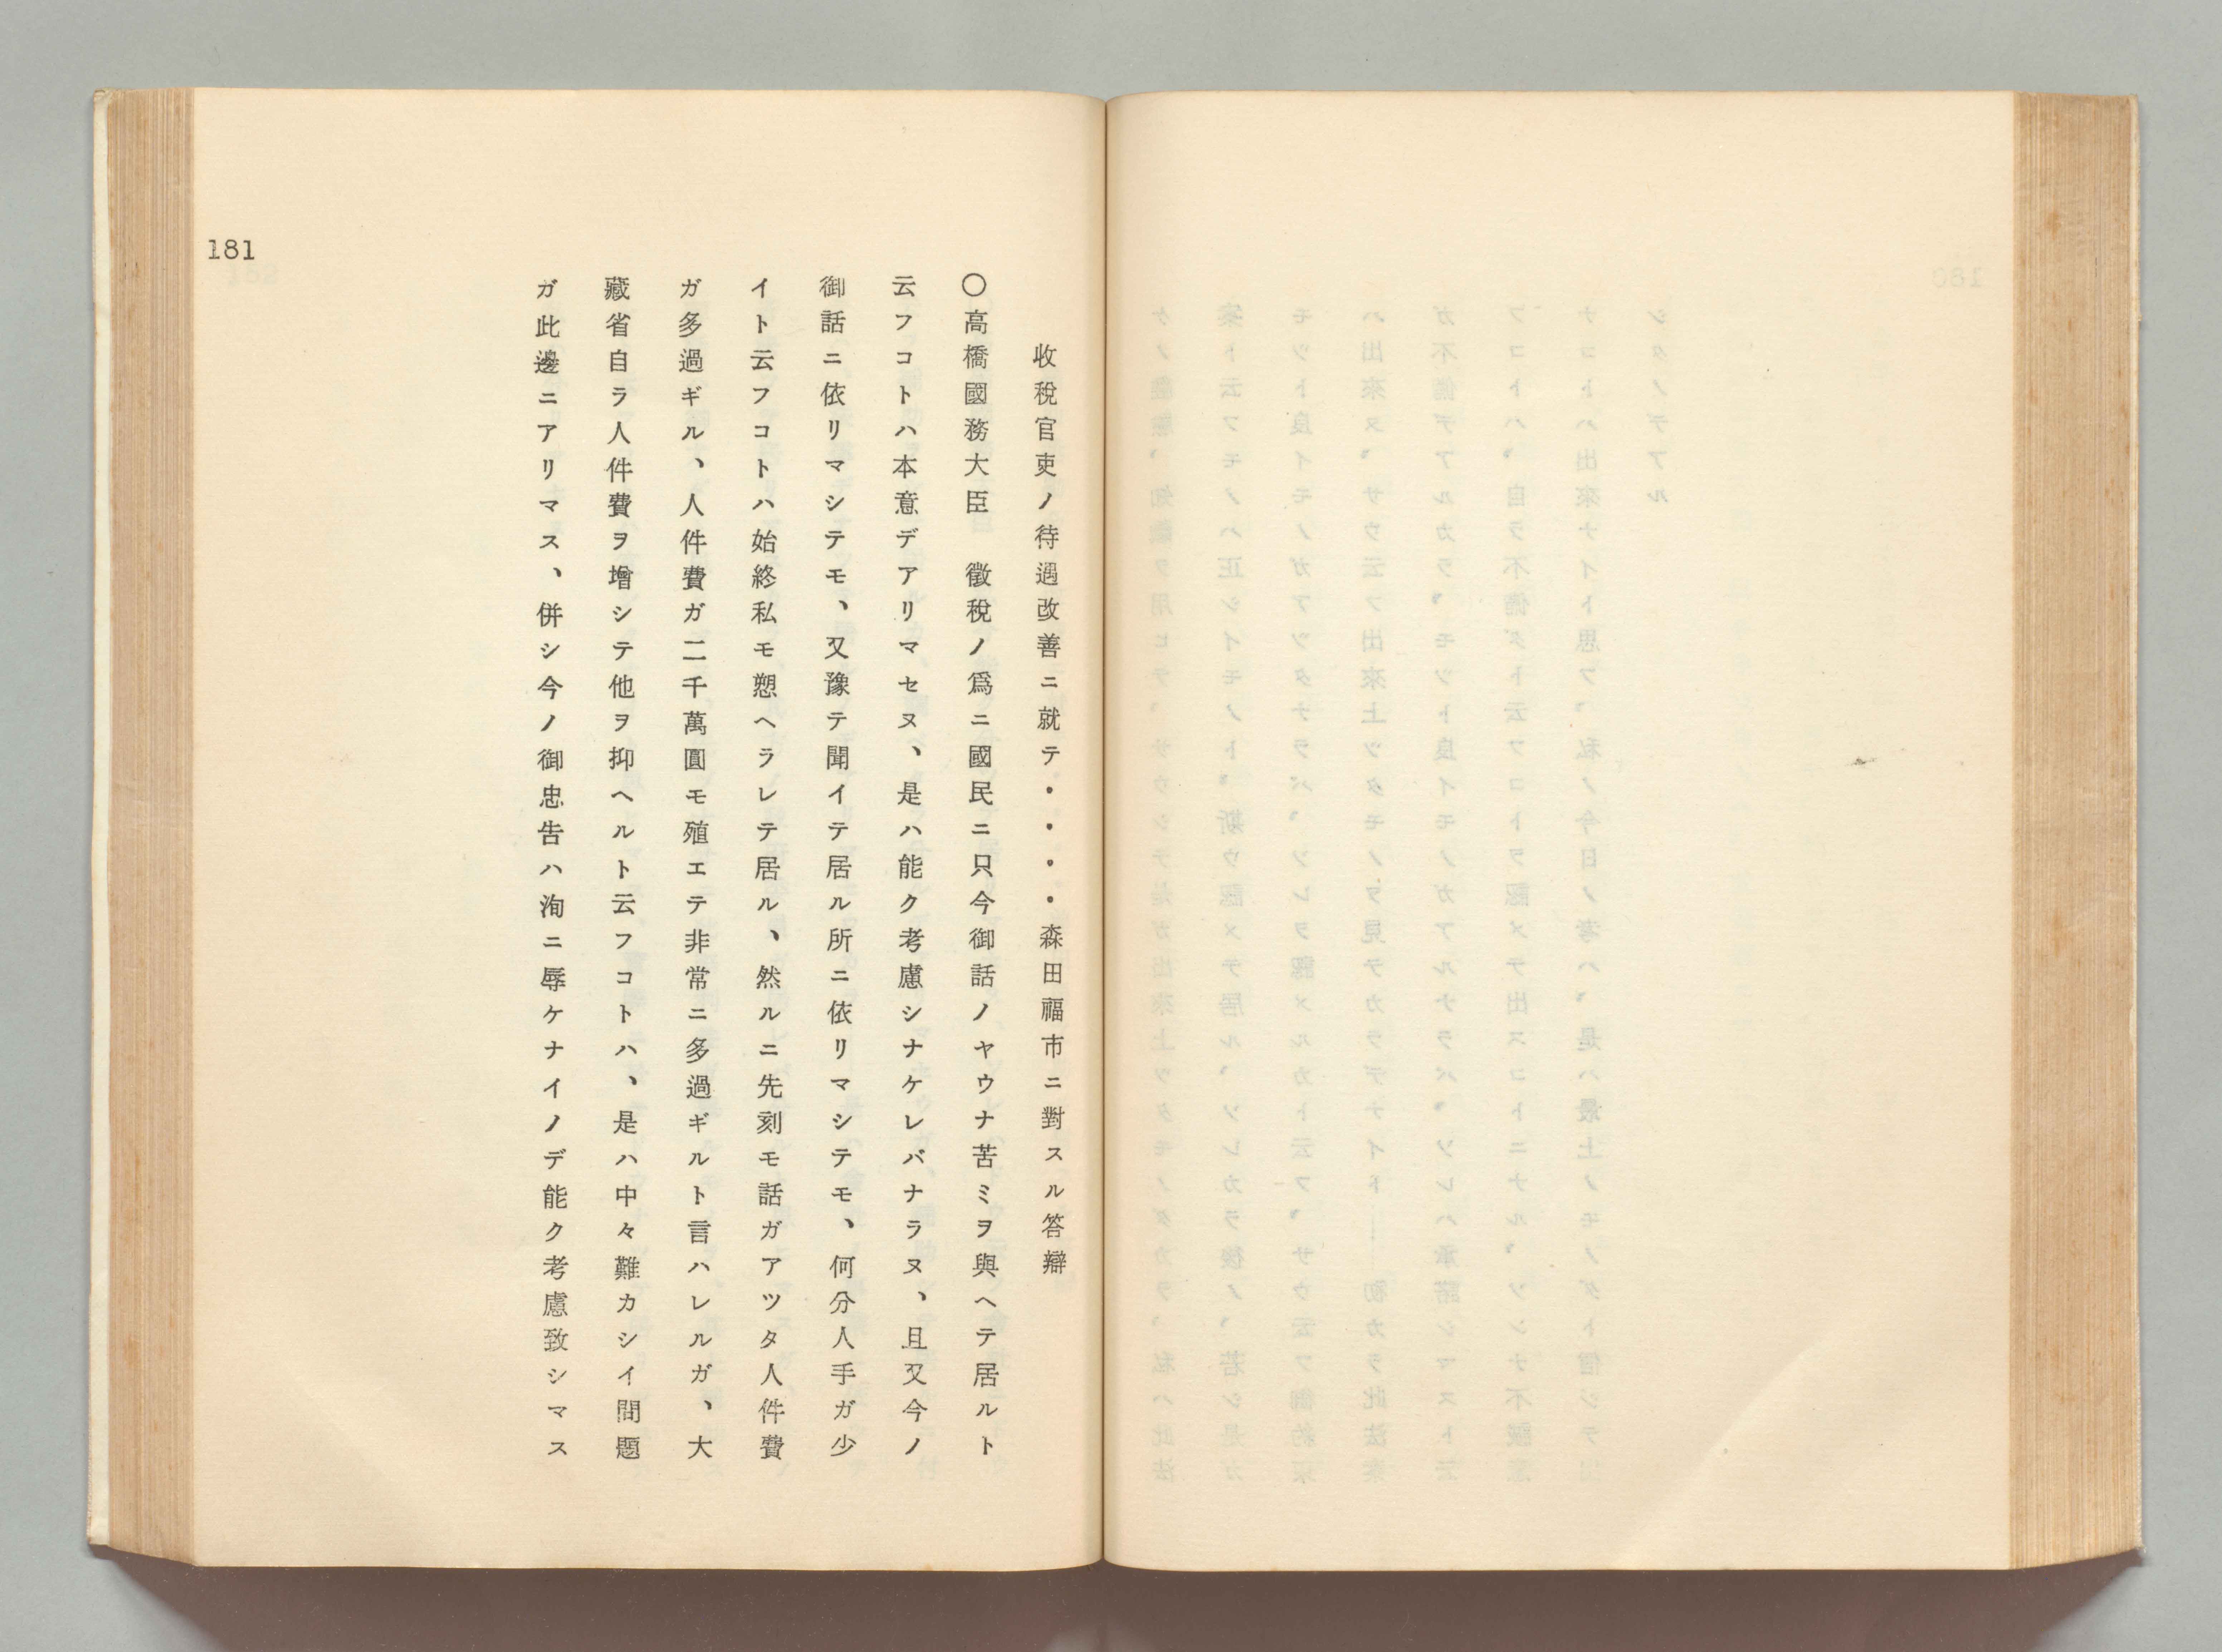 收税官吏ノ待遇改善ニ就テ・・・・森田福市ニ對スル答辯
〇高橋國務大臣　徵税ノ爲ニ國民ニ只今御話ノヤウナ苦ミヲ與ヘテ居ルト
云フコトハ本意デアリマセヌ、是ハ能ク考慮シナケレバナラヌ、且又今ノ
御話ニ依リマシテモ、又豫テ聞イテ居ル所ニ依リマシテモ、何分人手ガ少
イト云フコトハ始終私モ愬ヘラレテ居ル、然ルニ先刻モ話ガアツタ人件費
ガ多過ギル、人件費ガ二千萬圓モ殖エテ非常ニ多過ギルト言ハレルガ、大
藏省自ラ人件費ヲ增シテ他ヲ抑ヘルト云フコトハ、是ハ中々難カシイ問題
ガ此邊ニアリマス、併シ今ノ御忠告ハ洵ニ辱ケナイノデ能ク考慮致シマス
181